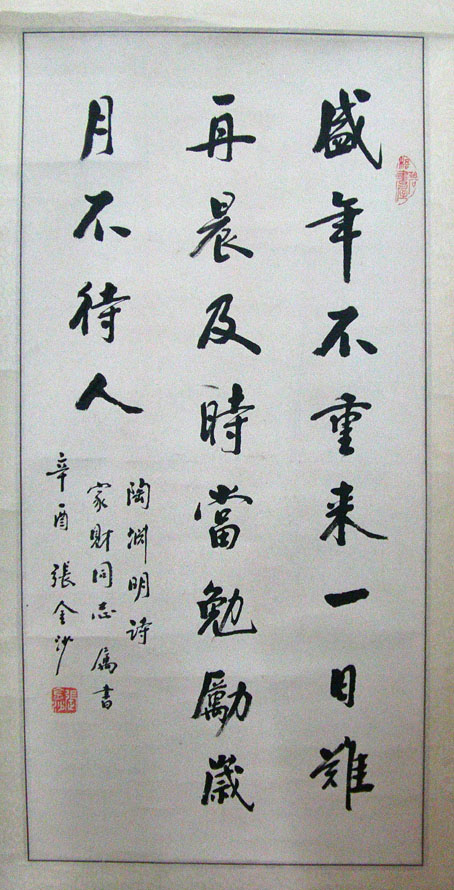 盛年不重来一日難
再晨及時當勉勵歲
月不待人
陶淵明詩
家財同志属書
辛酉張金沙